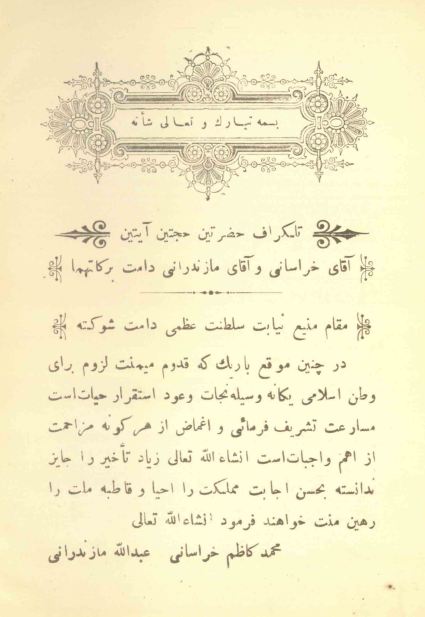 بسمه تبارك و تعالى شأنه
تلگراف حضرتین حجتین آیتین
آقای خراسانی و آقای مازندرانی دامت برکاتهما
مقام منیع نیابت سلطنت عظمی دامت شوکته
در چنین موقع باریك که قدوم میمنت لزوم برای
وطن اسلامی یکانه وسیله نجات وعود استقرار حیات است
مسارعت تشریف فرمائی و اغماض از هر کونه مزاحمت
از اهم واجبات است انشاء الله تعالی زیاد تأخیر را جایز
ندانسته بحسن اجابت مملکت را احیا و قاطبه ملت را
رهین منت خواهند فرمود انشاء الله تعالی
محمد کاظم خراسانی عبدالله مازندرانی